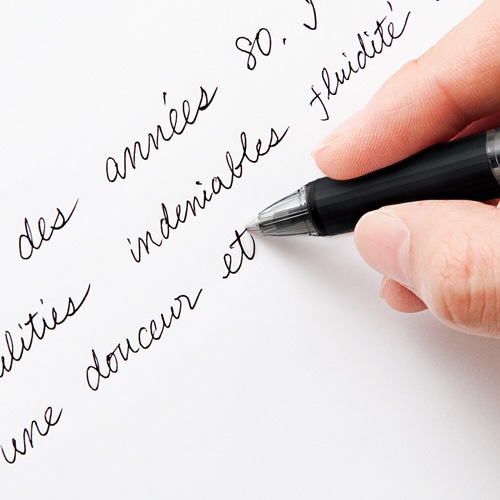 des années 80.
indeniables fluidité
une douceur et